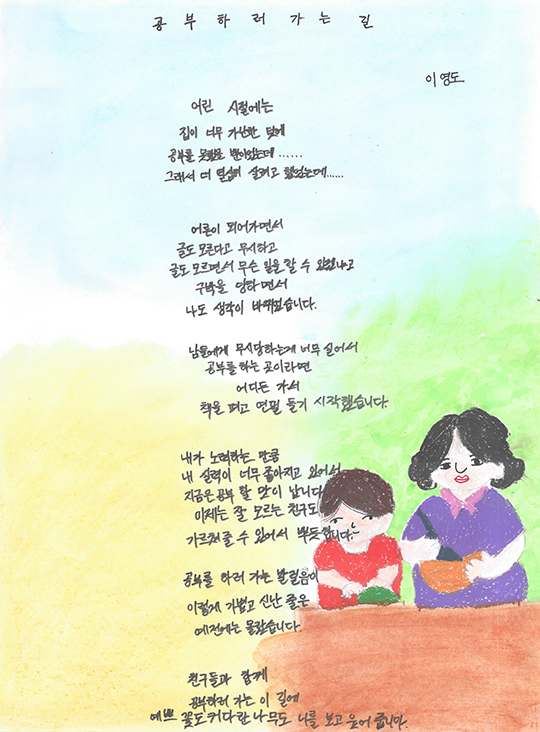 공부하러 가는 길
이영도
어린 시절에는
집이 너무 가난한 탓에
공부를 못했을 뿐이었는데 ......
그래서 더 열심히 살려고 했었는데......
어른이 되어가면서
글도 모른다고 무시하고
글도 모르면서 무슨 일을 할 수 있겠냐고
구박을 당하면서
나도 생각이 바뀌었습니다.
남들에게 무시당하는게 너무 싫어서
공부를 하는 곳이라면
어디든 가서
책을 펴고 연필 들기 시작했습니다.
내가 노력하는 만큼
내 실력이 너무 좋아지고 있어서
지금은 공부 할 맛이 납니다
이제는 잘 모르는 친구도
가르쳐 줄 수 있어서 뿌듯합니다.
공부를 하러 가는 발걸음이
이렇게 가볍고 신난 줄은
예전에는 몰랐습니다.
친구들과 함께
공부하러 가는 이 길에
예쁜 꽃도 커다란 나무도 나를 보고 웃어 줍니다.